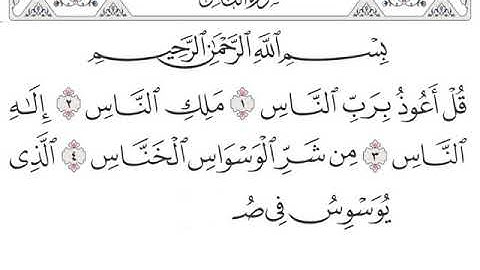 سورة الناس
بِسْمِ ٱللَّهِ ٱلرَّحْمَٰنِ ٱلرَّحِيمِ
قُلْ أَعُوذُ بِرَبِّ ٱلنَّاسِ ١ مَلِكِ ٱلنَّاسِ ٢ إِلَٰهِ
ٱلنَّاسِ ٣ مِن شَرِّ ٱلْوَسْوَاسِ ٱلْخَنَّاسِ ٤ ٱلَّذِى
يُوَسْوِسُ فِى صُ